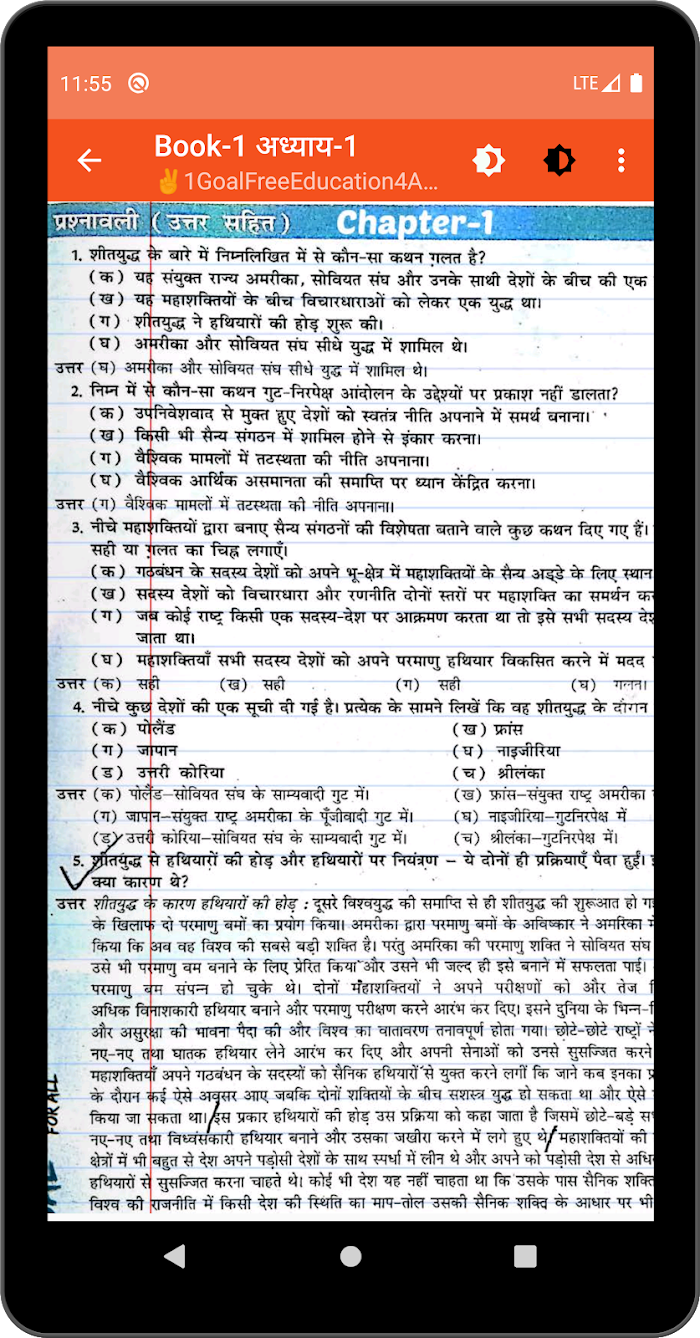 11:55
LTE
Book-1 अध्याय-1
✌1GoalFreeEducation4A...
प्रश्नावली ( उत्तर सहित ) Chapter-1
1. शीतयुद्ध के बारे में निम्नलिखित में से कौन-सा कथन ग़लत है?
(क) यह संयुक्त राज्य अमरीका, सोवियत संघ और उनके साथी देशों के बीच की एक
(ख) यह महाशक्तियों के बीच विचारधाराओं को लेकर एक युद्ध था।
(ग) शीतयुद्ध ने हथियारों की होड़ शुरू की।
(घ) अमरीका और सोवियत संघ सीधे युद्ध में शामिल थे।
उत्तर (घ) अमरीका और सोवियत संघ सीधे युद्ध में शामिल थे।
2. निम्न में से कौन-सा कथन गुट-निरपेक्ष आंदोलन के उद्देश्यों पर प्रकाश नहीं डालता?
(क) उपनिवेशवाद से मुक्त हुए देशों को स्वतंत्र नीति अपनाने में समर्थ बनाना।
(ख) किसी भी सैन्य संगठन में शामिल होने से इंकार करना।
(ग) वैश्विक मामलों में तटस्थता की नीति अपनाना।
(घ) वैश्विक आर्थिक असमानता की समाप्ति पर ध्यान केंद्रित करना।
उत्तर (ग) वैश्विक मामलों में तटस्थता की नीति अपनाना।
3. नीचे महाशक्तियों द्वारा बनाए सैन्य संगठनों की विशेषता बताने वाले कुछ कथन दिए गए हैं।
सही या ग़लत का चिह्न लगाएँ।
(क) गठबंधन के सदस्य देशों को अपने भू-क्षेत्र में महाशक्तियों के सैन्य अड्डे के लिए स्थान
(ख) सदस्य देशों को विचारधारा और रणनीति दोनों स्तरों पर महाशक्ति का समर्थन
(ग) जब कोई राष्ट्र किसी एक सदस्य-देश पर आक्रमण करता था तो इसे सभी सदस्य
जाता था।
(घ) महाशक्तियाँ सभी सदस्य देशों को अपने परमाणु हथियार विकसित करने में मदद
उत्तर (क) सही (ख) सही (ग) सही (घ)
4. नीचे कुछ देशों की एक सूची दी गई है। प्रत्येक के सामने लिखें कि वह शीतयुद्ध के दौरान
(क) पोलैंड (ख) फ्रांस
(ग) जापान (घ) नाइजीरिया
(ड) उत्तरी कोरिया (च) श्रीलंका
उत्तर (क) पोलैंड—सोवियत संघ के साम्यवादी गुट में। (ख) फ्रांस—संयुक्त राष्ट्र अमरीका
(ग) जापान—संयुक्त राष्ट्र अमरीका के पूँजीवादी गुट में। (घ) नाइजीरिया—गुटनिरपेक्ष में
(ड) उत्तरी कोरिया—सोवियत संघ के साम्यवादी गुट में। (च) श्रीलंका—गुटनिरपेक्ष में।
5. शीतयुद्ध से हथियारों की होड़ और हथियारों पर नियंत्रण – ये दोनों ही प्रक्रियाएँ पैदा हुईं।
क्या कारण थे?
उत्तर शीतयुद्ध के कारण हथियारों की होड़ : दूसरे विश्वयुद्ध की समाप्ति से ही शीतयुद्ध की शुरूआत हो
के खिलाफ दो परमाणु बमों का प्रयोग किया। अमरीका द्वारा परमाणु बमों के अविष्कार ने अमरिका
किया कि अब वह विश्व की सबसे बड़ी शक्ति है। परंतु अमरिका की परमाणु शक्ति ने सोवियत संघ
उसे भी परमाणु बम बनाने के लिए प्रेरित किया और उसने भी जल्द ही इसे बनाने में सफलता पाई।
परमाणु बम संपन्न हो चुके थे। दोनों महाशक्तियों ने अपने परीक्षणों को और तेज
अधिक विनाशकारी हथियार बनाने और परमाणु परीक्षण करने आरंभ कर दिए। इसने दुनिया के भिन्न-
और असुरक्षा की भावना पैदा की और विश्व का वातावरण तनावपूर्ण होता गया। छोटे-छोटे राष्ट्रों
नए-नए तथा घातक हथियार लेने आरंभ कर दिए और अपनी सेनाओं को उनसे सुसज्जित करने
महाशक्तियाँ अपने गठबंधन के सदस्यों को सैनिक हथियारों से युक्त करने लगीं कि जाने कब इनका
के दौरान कई ऐसे अवसर आए जबकि दोनों शक्तियों के बीच सशस्त्र युद्ध हो सकता था और ऐसे
किया जा सकता था। इस प्रकार हथियारों की होड़ उस प्रक्रिया को कहा जाता है जिसमें छोटे-बड़े
नए-नए तथा विध्वंसकारी हथियार बनाने और उसका जखीरा करने में लगे हुए थे। महाशक्तियों की
क्षेत्रों में भी बहुत से देश अपने पड़ोसी देशों के साथ स्पर्धा में लीन थे और अपने को पड़ोसी देश से
हथियारों से सुसज्जित करना चाहते थे। कोई भी देश यह नहीं चाहता था कि उसके पास सैनिक
विश्व की राजनीति में किसी देश की स्थिति का माप-तोल उसकी सैनिक शक्ति के आधार पर भी
FOR ALL